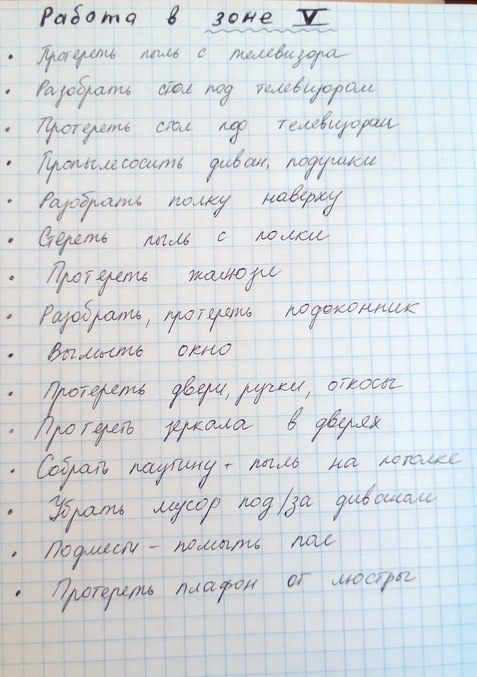 Работа в зоне V
• Протереть пыль с телевизора
• Разобрать стол под телевизором
• Протереть стол под телевизором
• Пропылесосить диван, подушки
• Разобрать полку наверху
• Стереть пыль с полки
• Протереть жалюзи
• Разобрать, протереть подоконник
• Вымыть окно
• Протереть двери, ручки, откосы
• Протереть зеркала в дверях
• Собрать паутину + пыль на потолке
• Убрать мусор под/за диваном
• Подмести – помыть пол
• Протереть плафон от люстры